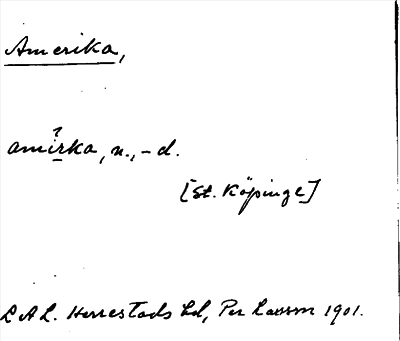 Amerika,
amirka, n., -d.
[St. Köpinge]
L A L. Herrestads hd, Per Laorm 1901.